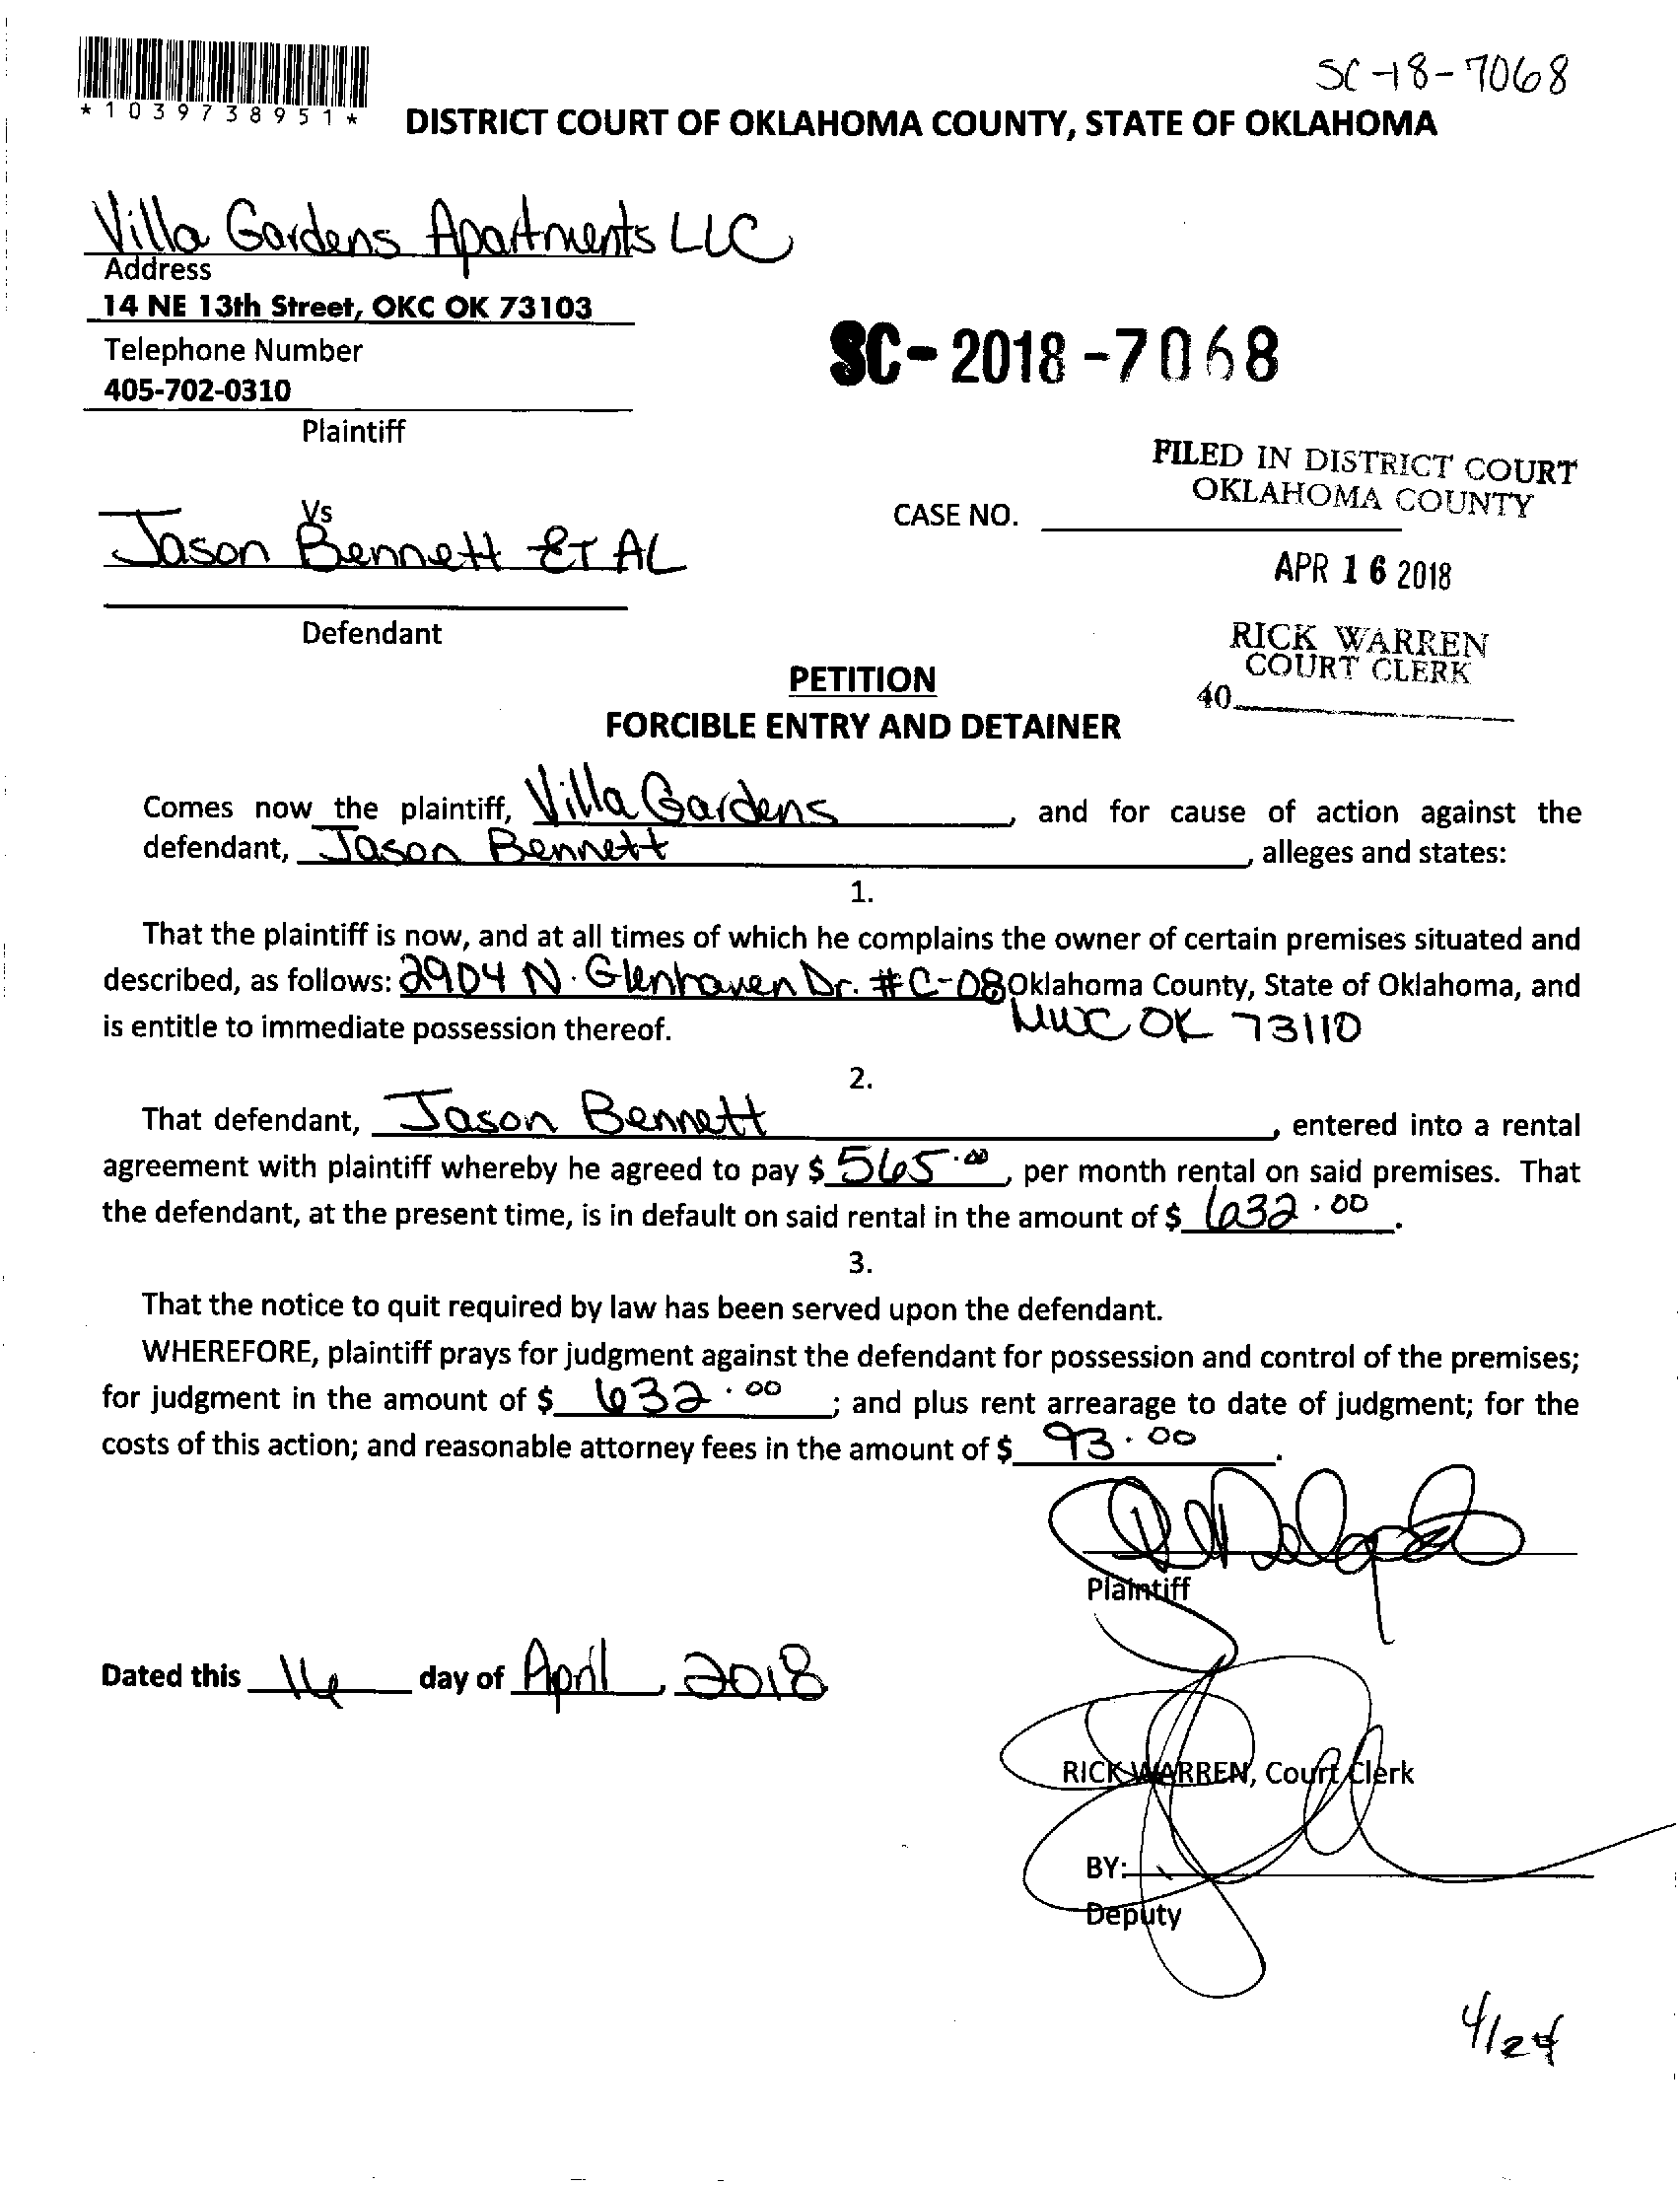 SC-18-7068
*1039738951*
DISTRICT COURT OF OKLAHOMA COUNTY, STATE OF OKLAHOMA
Villa Gardens Apartments LLC
Address
14 NE 13th Street, OKC OK 73103
Telephone Number
405-702-0310
Plaintiff
SC-2018-7068
FILED IN DISTRICT COURT
OKLAHOMA COUNTY
Vs
CASE NO.
Jason Bennett ET AL
APR 16 2018
Defendant
RICK WARREN
COURT CLERK
40
PETITION
FORCIBLE ENTRY AND DETAINER
Comes now the plaintiff, Villa Gardens, and for cause of action against the
defendant, Jason Bennett, alleges and states:
1.
That the plaintiff is now, and at all times of which he complains the owner of certain premises situated and
described, as follows: 2904 N. Glenhaven Dr. #C-08 Oklahoma County, State of Oklahoma, and
is entitle to immediate possession thereof. MWC OK 73110
2.
That defendant, Jason Bennett, entered into a rental
agreement with plaintiff whereby he agreed to pay $ 565.00, per month rental on said premises. That
the defendant, at the present time, is in default on said rental in the amount of $ 632.00.
3.
That the notice to quit required by law has been served upon the defendant.
WHEREFORE, plaintiff prays for judgment against the defendant for possession and control of the premises;
for judgment in the amount of $ 632.00; and plus rent arrearage to date of judgment; for the
costs of this action; and reasonable attorney fees in the amount of $ 93.00.
Plaintiff
Dated this 16 day of April, 2018
RICK WARREN, Court Clerk
BY:
Deputy
4/24